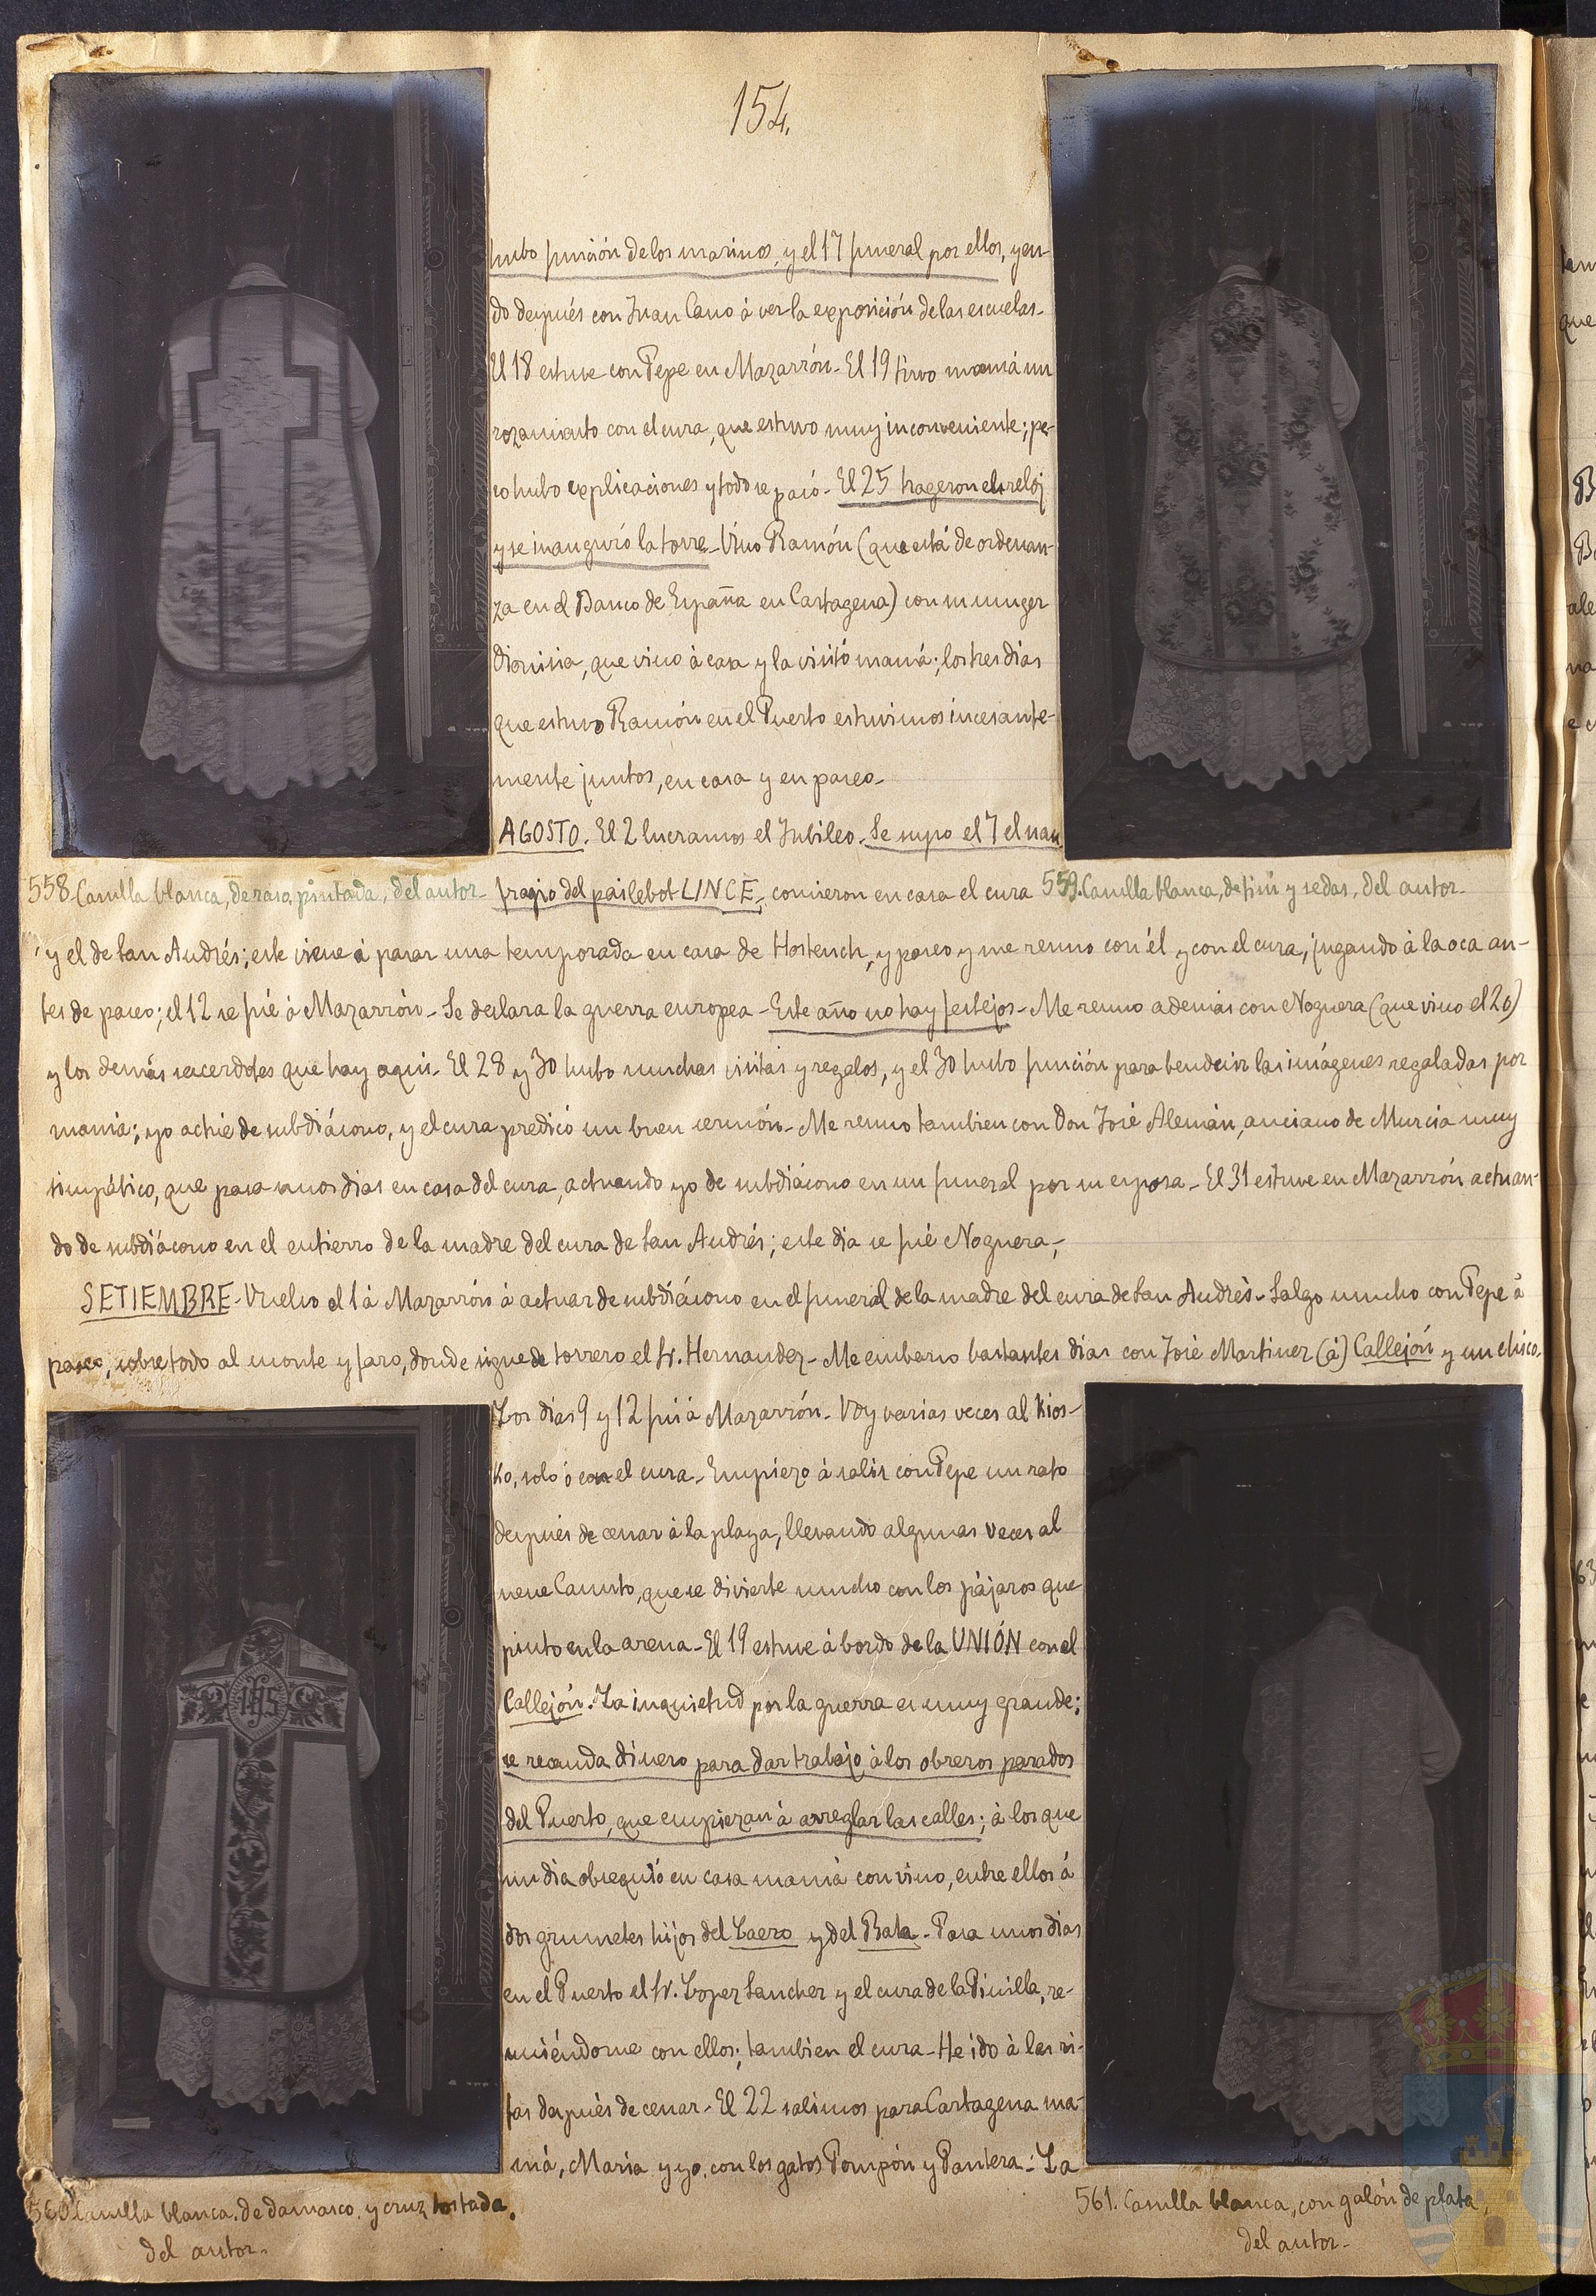 154.
hubo función de los marinos, y el 17 funeral por ellos, yen-
do después con Juan Cano à ver la exposición de las escuelas-
El 18 estuve con Pepe en Mazarrón- El 19 tuvo mamá un
rozamiento con el cura, que estuvo muy inconveniente; pe-
ro hubo explicaciones y todo se pasó- El 25 trageron el reloj
y se inauguró la torre- Vino Ramón (que está de ordenan-
za en el Banco de España en Cartagena) con su muger
Dionisia, que vino à casa y la visitó mamá; los tres dias
que estuvo Ramón en el Puerto estuvimos incesante-
mente juntos, en casa y en paseo-
AGOSTO. El 2 lucramos el Jubileo- Se supo el 7 el nau
558-Casulla blanca, de raso, pintada, del autor-
fragio del pailebot LINCE; comieron en casa el cura
559. Casulla blanca, de tisú y sedas, del autor-
y el de San Andrés; este viene à pasar una temporada en casa de Hostench, y paseo y me reuno con él y con el cura, jugando à la oca an-
tes de paseo; el 12 se fué à Mazarrón- Se declara la guerra europea- Este año no hay festejos- Me reuno además con Noguera (que vino el 20)
y los demás sacerdotes que hay aqui- El 28 y 30 hubo muchas visitas y regalos, y el 30 hubo función para bendecir las imágenes regaladas por
mamá; yo actué de subdiácono, y el cura predicó un buen sermón- Me reuno tambien con Don José Alemán, anciano de Murcia muy
simpático, que pasa unos dias en casa del cura, actuando yo de subdiácono en un funeral por su esposa- El 31 estuve en Mazarrón actuan-
do de subdiácono en el entierro de la madre del cura de San Andrés; este dia se fué Noguera;-
SETIEMBRE- Vuelvo el 1 à Mazarrón à actuar de subdiácono en el funeral de la madre del cura de San Andrés- Salgo mucho con Pepe à
paseo, sobre todo al monte y faro, donde sigue de torrero el Sr. Hernandez- Me embarco bastantes dias con José Martinez (à) Callejón y un chico.
Los dias 9 y 12 fui à Mazarrón- Voy varias veces al kios-
ko, solo ó con el cura- Empiezo à salir con Pepe un rato
después de cenar à la playa, llevando algunas veces al
nene Canuto, que se divierte mucho con los pájaros que
pinto en la arena- El 19 estuve à bordo de la UNIÓN con el
Callejón. La inquietud por la guerra es muy grande;
se recauda dinero para dar trabajo à los obreros parados
del Puerto, que empiezan à arreglar las calles; à los que
un dia obsequió en casa mamá con vino, entre ellos à
dos grumetes hijos del Laero y del Bala- Pasa unos dias
en el Puerto el Sr. Lopez Sanchez y el cura de la Pinilla, re-
uniéndome con ellos; tambien el cura- He ido à las ri-
fas después de cenar- El 22 salimos para Cartagena ma-
má, Maria y yo, con los gatos Pompón y Pantera- La
560 Casulla blanca, de damasco, y cruz tostada,
del autor-
561. Casulla blanca, con galón de plata,
del autor-